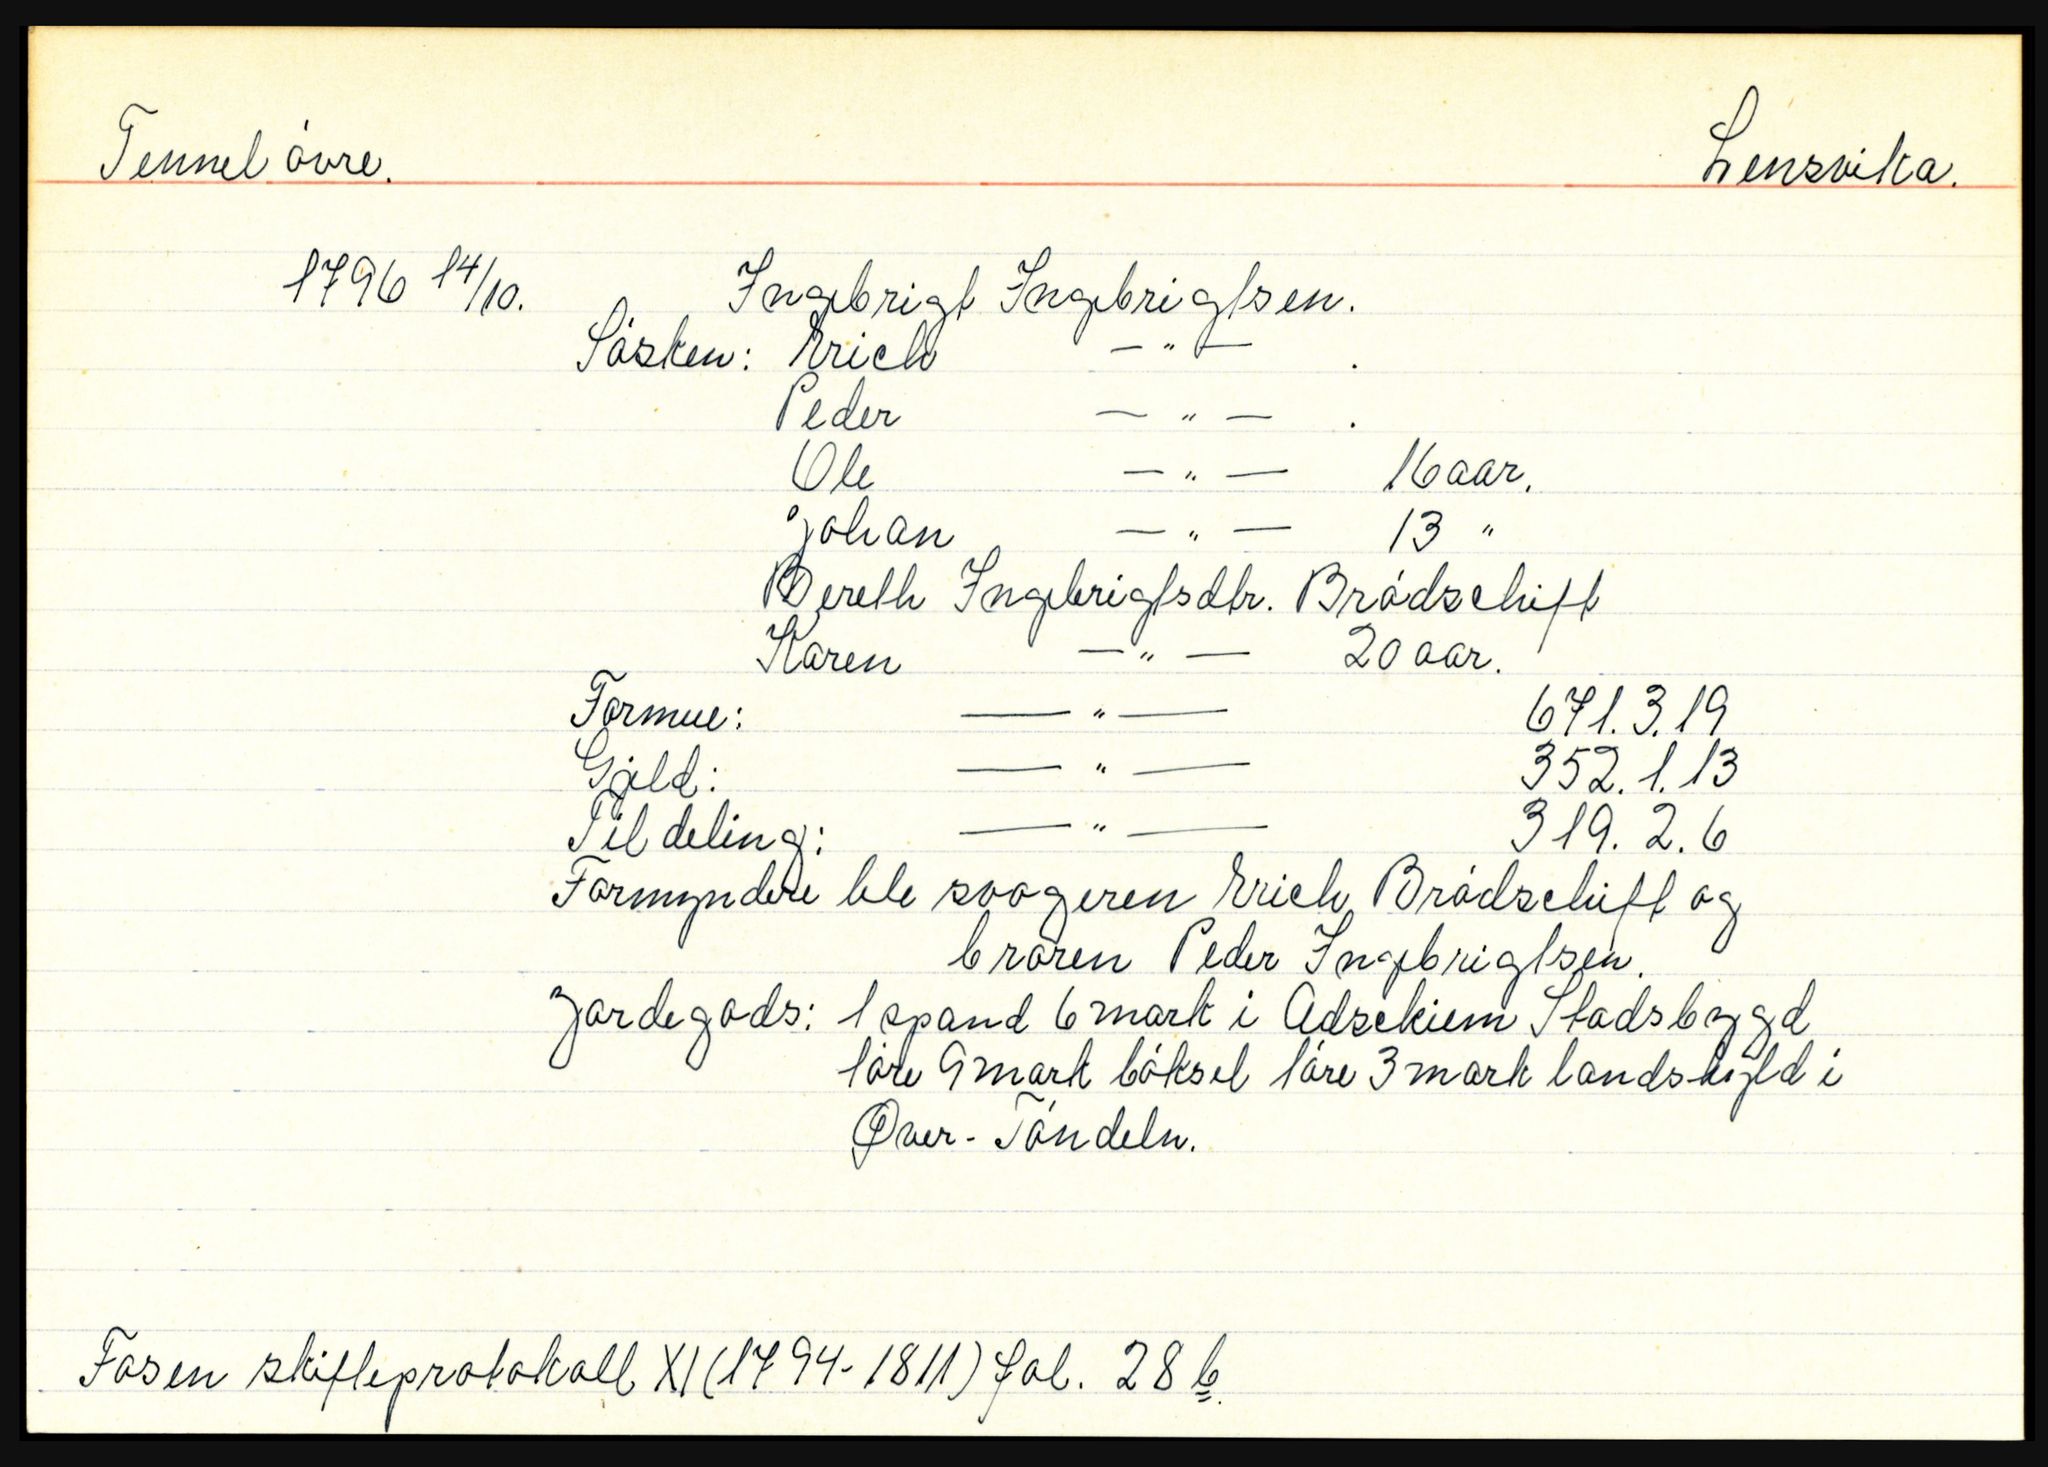 Tennel óvre. Lensvika.
1796 14/10. Ingebrigt Ingebrigtsen.
Sósken: Erich — " — .
Peder — " — .
Ole — " — 16 aar.
Johan — " — 13 "
Bereth Ingebrigtsdtr. Bródschift
Karen — " — 20 aar.
Formue: — " — 671.3.19
Gjeld: — " — 352.1.13
Til deling: — " — 319.2.6
Formyndere ble svogeren Erich Bródschift og
broren Peder Ingebrigtsen.
Jordegods: 1 spand 6 mark i Adsekiem Stadsbygd
1óre 9 mark bóksel 1óre 3 mark landskyld i
Över-Tóndeln.
Fosen skifteprotokoll XI (1794-1811) fol. 28 b.